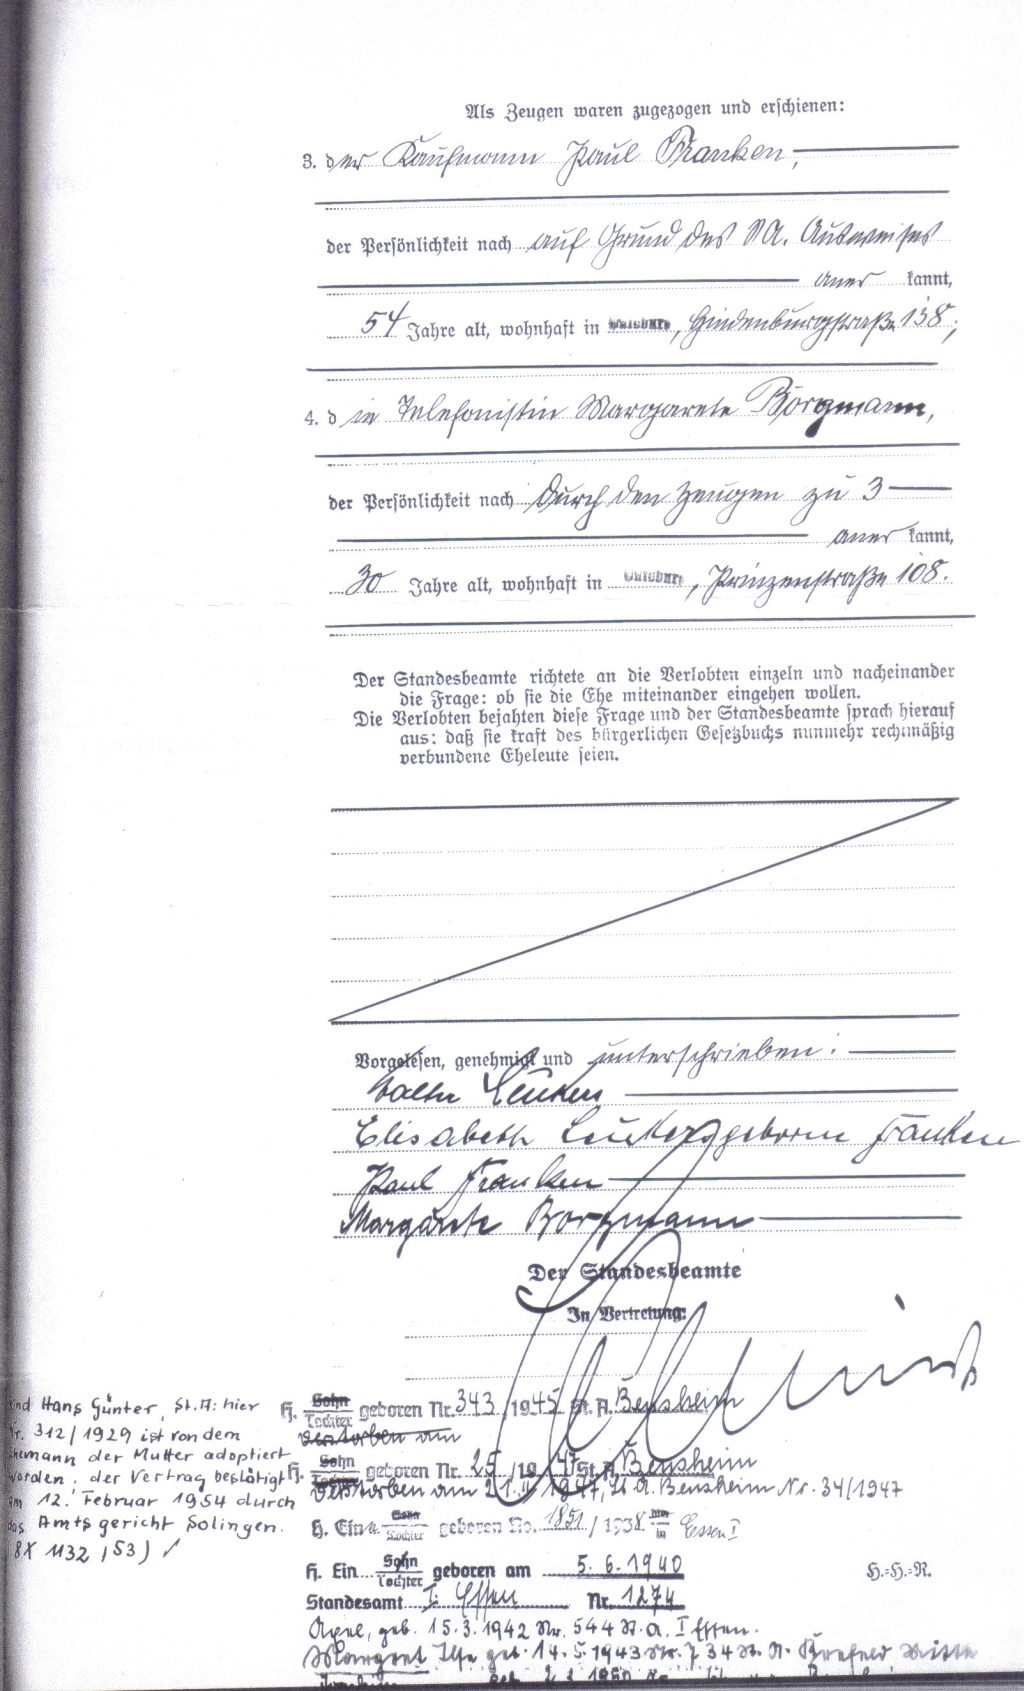 Als Zeugen waren zugezogen und erschienen:
3. der Kaufmann Paul Franken,
der Persönlichkeit nach auf Grund des SA. Ausweises
aner kannt,
54 Jahre alt, wohnhaft in Duisburg, Hindenburgstraße 138;
4. d ie Telefonistin Margarete Borgmann,
der Persönlichkeit nach durch den Zeugen zu 3
aner kannt,
30 Jahre alt, wohnhaft in Duisburg, Prinzenstraße 108.
Der Standesbeamte richtete an die Verlobten einzeln und nacheinander
die Frage: ob sie die Ehe miteinander eingehen wollen.
Die Verlobten bejahten diese Frage und der Standesbeamte sprach hierauf
aus: daß sie kraft des bürgerlichen Gesetzbuchs nunmehr rechtmäßig
verbundene Eheleute seien.
Vorgelesen, genehmigt und unterschrieben:
Elisabeth geborene Franken
Paul Franken
Margarete Borgmann
Der Standesbeamte
In Vertretung:
Hans Günter, St. A: hier
Nr. 312/1929 ist von dem
Ehemann der Mutter adoptiert
worden. der Vertrag bestätigt
am 12. Februar 1954 durch
das Amtsgericht Solingen.
8X 1132/53)
H. Sohn Tochter geboren Nr. 343/1945 St. A. Bensheim
verstorben am
H. Sohn Tochter geboren Nr. 25/1947 St. A. Bensheim
Verstorben am 1947, St A. Bensheim Nr. 34/1947
H. Ein Sohn Tochter geboren No. 1851/1938 hier in Essen I
H. Ein Sohn Tochter geboren am 5. 6. 1940 H.=H.=R.
Standesamt I Essen Nr. 1274
Axel, geb. 15.3.1942 Nr. 544 St. A. I Essen.
Margret Ilse geb. 14.5.1943 Nr. 734 St. A. Krefeld Mitte